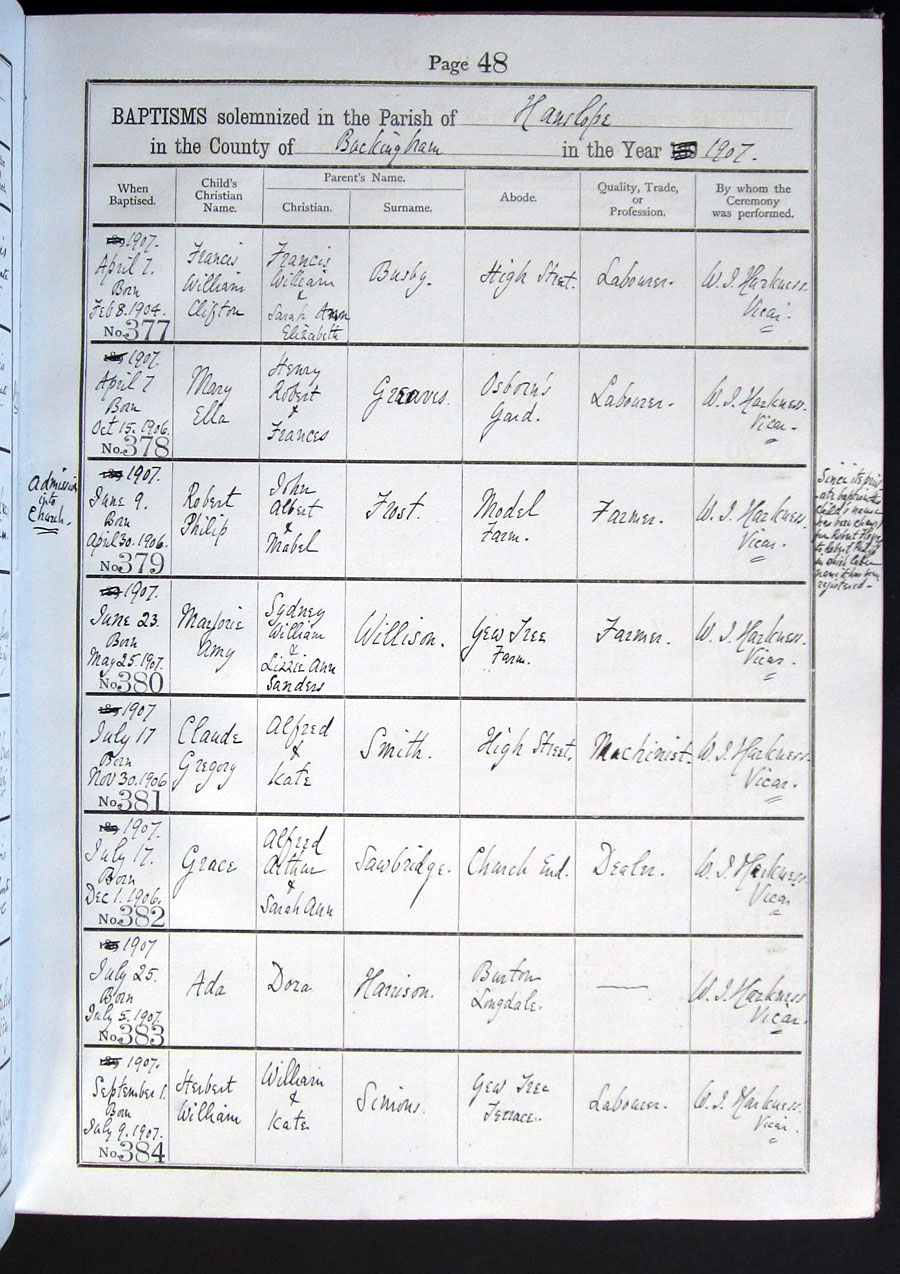 Page 48
BAPTISMS solemnized in the Parish of Hanslope
in the County of Buckingham in the Year 1907.
When Baptised.
Child's Christian Name.
Parent's Name.
Christian.
Surname.
Abode.
Quality, Trade, or Profession.
By whom the Ceremony was performed.
1907.
April 7.
Born
Feb 8. 1904.
No. 377
Francis
William
Clifton
Francis
William
&
Sarah Ann
Elizabeth
Busby.
High Street.
Labourer.
W. J. Harkness.
Vicar.
1907.
April 7
Born
Oct 15. 1906.
No. 378
Mary
Ella
Henry
Robert
&
Frances
Greaves.
Osborn's
Yard.
Labourer.
W. J. Harkness.
Vicar.
Admission
into
Church.
1907.
June 9.
Born
April 30. 1906.
No. 379
Robert
Philip
John
Albert
&
Mabel
Frost.
Model
Farm.
Farmer.
W. J. Harkness.
Vicar.
Since its priv
ate baptism the
child's name
has been changed
from Robert
to Robert Philip
in which latter
name it has been
registered.
1907.
June 23.
Born
May 25. 1907.
No. 380
Marjorie
Amy
Sydney
William
&
Lizzie Ann
Sanders
Willison.
Yew Tree
Farm.
Farmer.
W. J. Harkness.
Vicar.
1907
July 17
Born
Nov 30. 1906
No. 381
Claude
Gregory
Alfred
&
Kate
Smith.
High Street.
Machinist.
W. J. Harkness.
Vicar.
1907.
July 17.
Born
Dec 1. 1906.
No. 382
Grace
Alfred
Arthur
&
Sarah Ann
Sawbridge.
Church End.
Dealer.
W. J. Harkness.
Vicar
1907
July 25.
Born
July 5. 1907.
No. 383
Ada
Dora
Harrison.
Burton
Longdale.
—
W. J. Harkness
Vicar.
1907.
September 1.
Born
July 9. 1907.
No. 384
Herbert
William
William
&
Kate
Simons.
Yew Tree
Terrace.
Labourer.
W. J. Harkness.
Vicar.